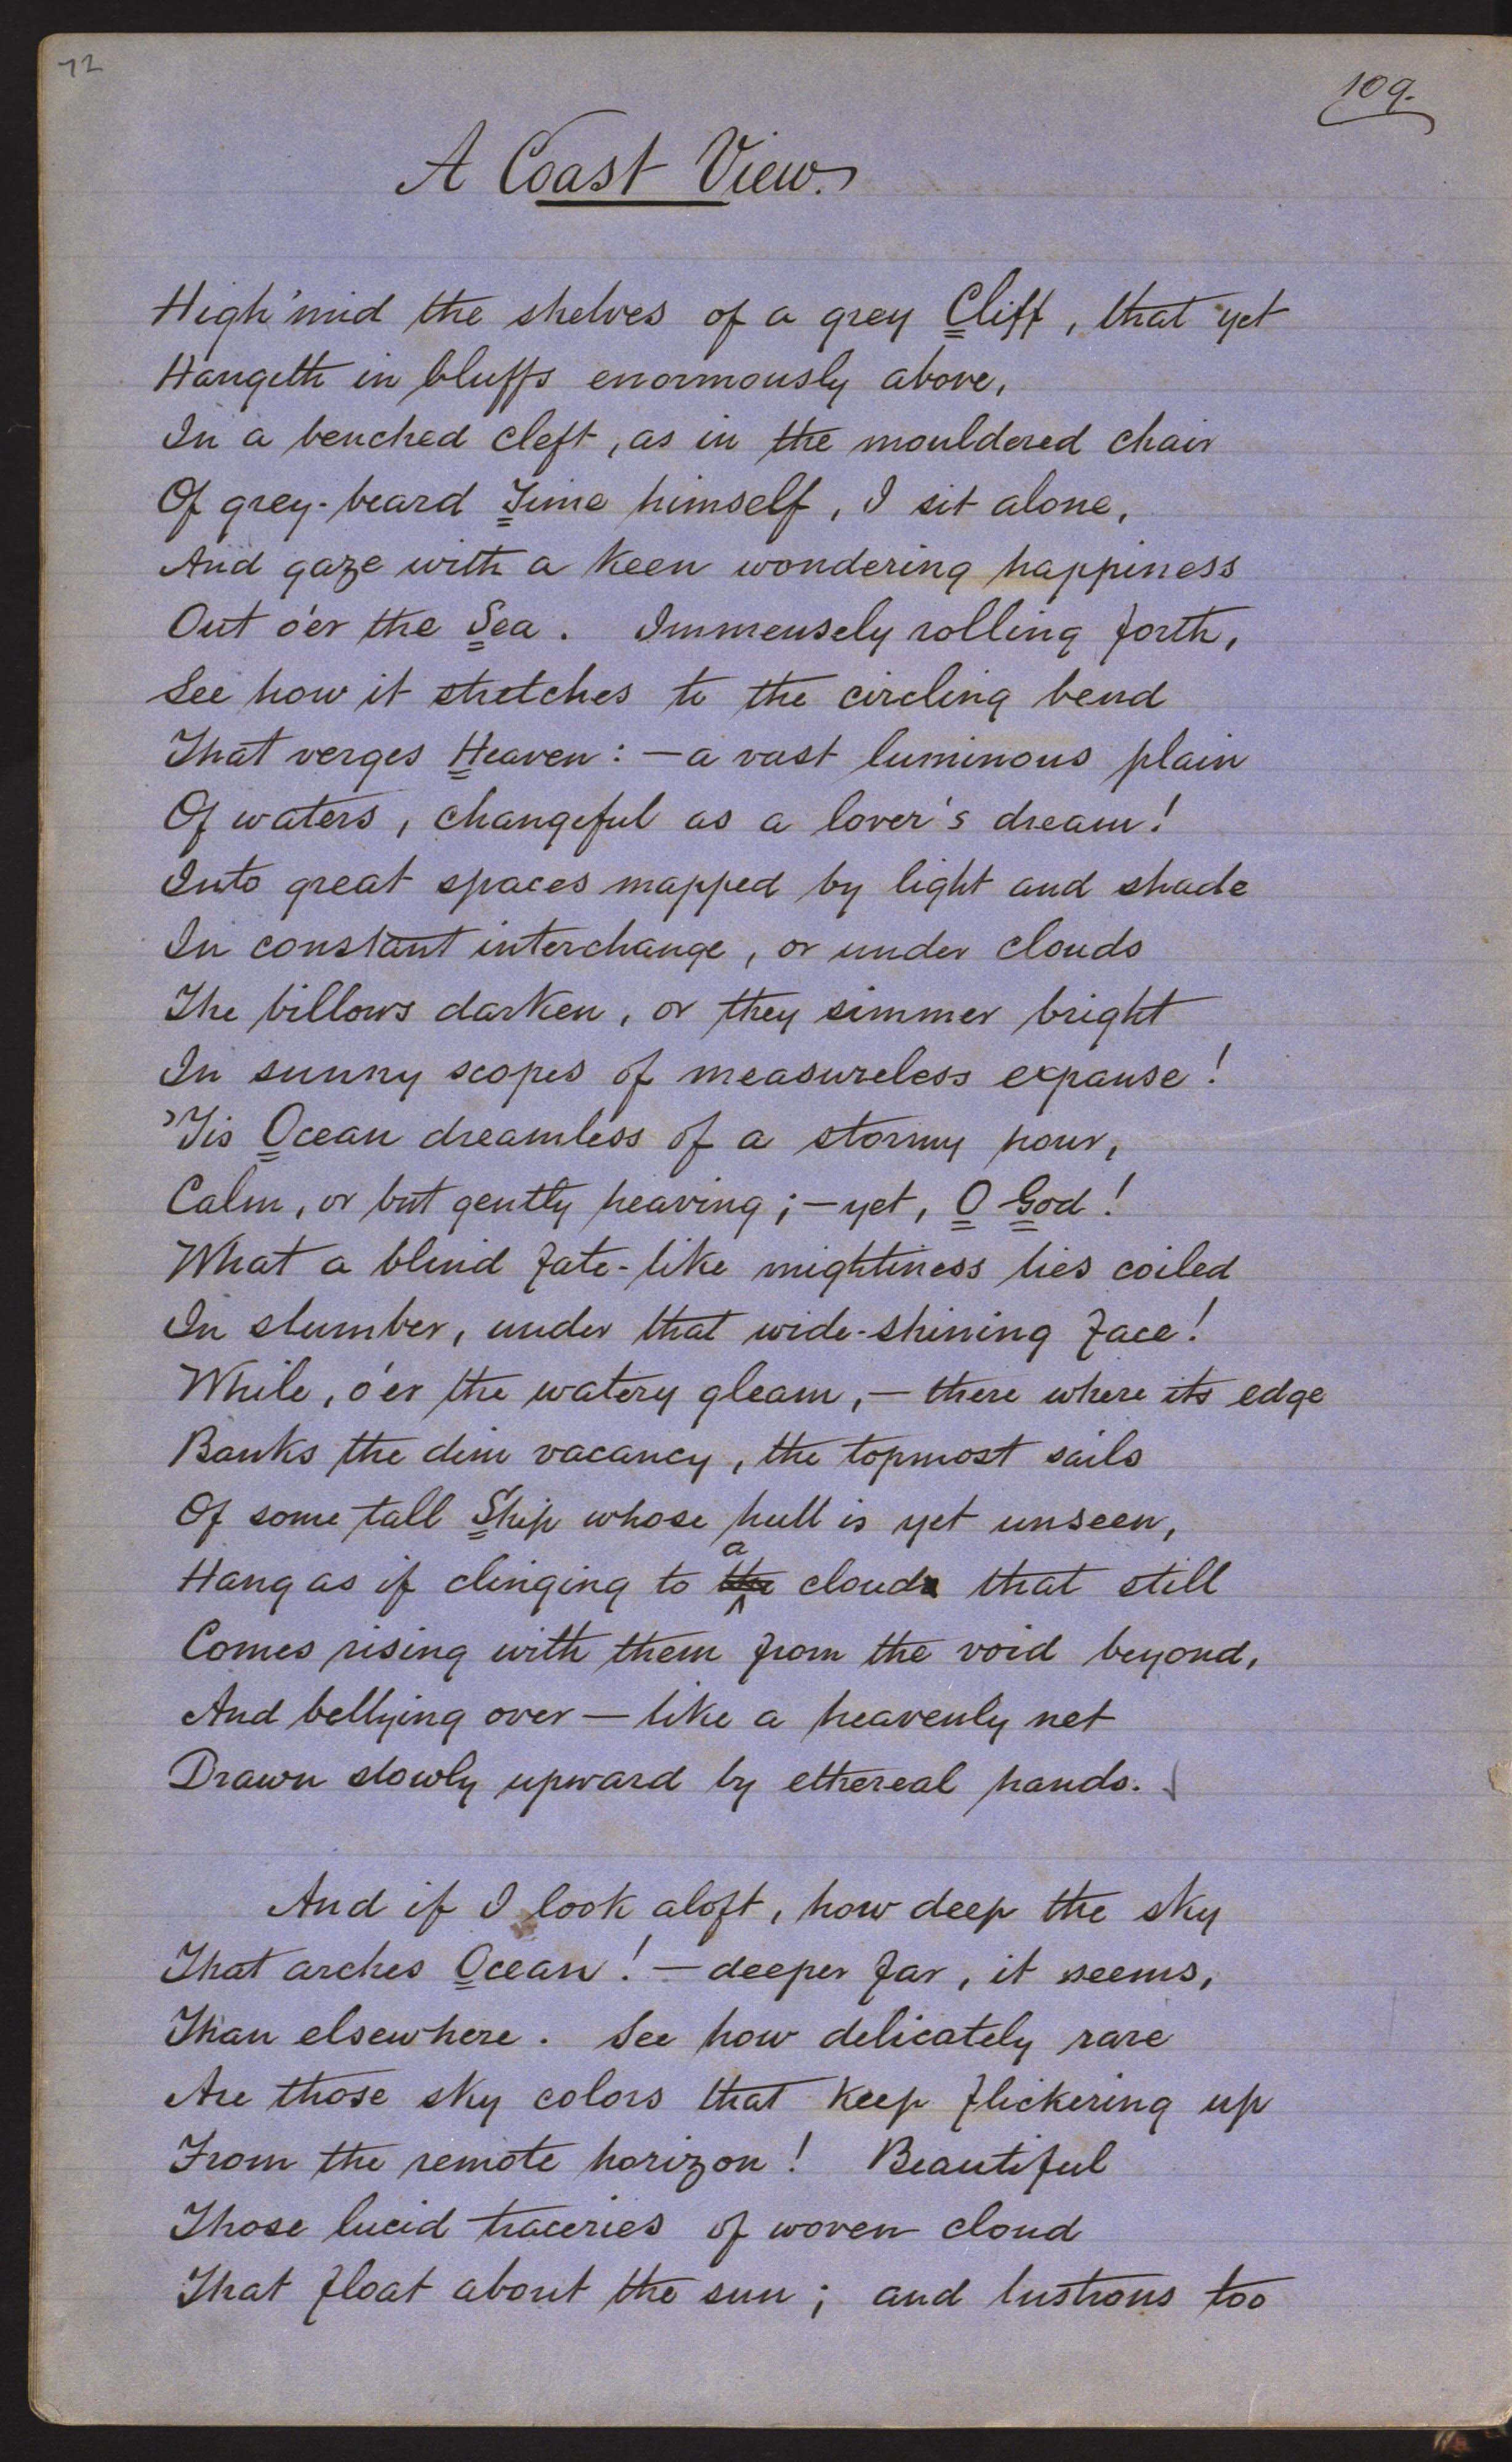 72
109.
A Coast View.
High 'mid the shelves of a grey Cliff, that yet
Hangeth in bluffs enormously above,
In a benched cleft, as in the mouldered chair
Of grey-beard Time himself, I sit alone,
And gaze with a keen wondering happiness
Out o'er the Sea. Immensely rolling forth,
See how it stretches to the circling bend
That verges Heaven: — a vast luminous plain
Of waters, changeful as a lover's dream!
Into great spaces mapped by light and shade
In constant interchange, or under clouds
The billows darken, or they simmer bright
In sunny scopes of measureless expanse!
'Tis Ocean dreamless of a stormy hour,
Calm, or but gently heaving; — yet, O God!
What a blind fate-like mightiness lies coiled
In slumber, under that wide-shining face!
While, o'er the watery gleam, — there where its edge
Banks the dim vacancy, the topmost sails
Of some tall Ship whose hull is yet unseen,
a
Hang as if clinging to the cloud that still
Comes rising with them from the void beyond,
And bellying over — like a heavenly net
Drawn slowly upward by ethereal hands.
And if I look aloft, how deep the sky
That arches Ocean! — deeper far, it seems,
Than elsewhere. See how delicately rare
Are those sky colors that keep flickering up
From the remote horizon! Beautiful
Those lucid traceries of woven cloud
That float about the sun; and lustrous too